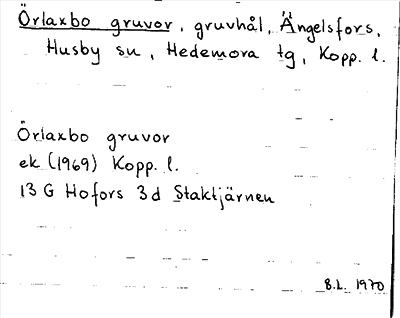 Örlaxbo gruvor, gruvhål, Ängelsfors,
Husby sn, Hedemora tg, Kopp. l.
Örlaxbo gruvor
ek (1969) Kopp. l.
13 G Hofors 3 d Staktjärnen
B.L. 1970